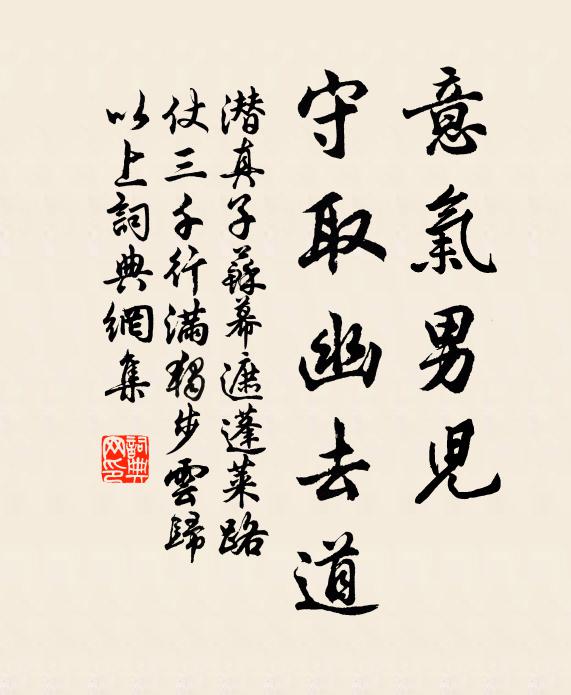 意氣男児
守取幽去道
潜真子蘇幕遮蓬莱路
仗三千行滿獨步雲歸
以上詞典網集
詞典
网印